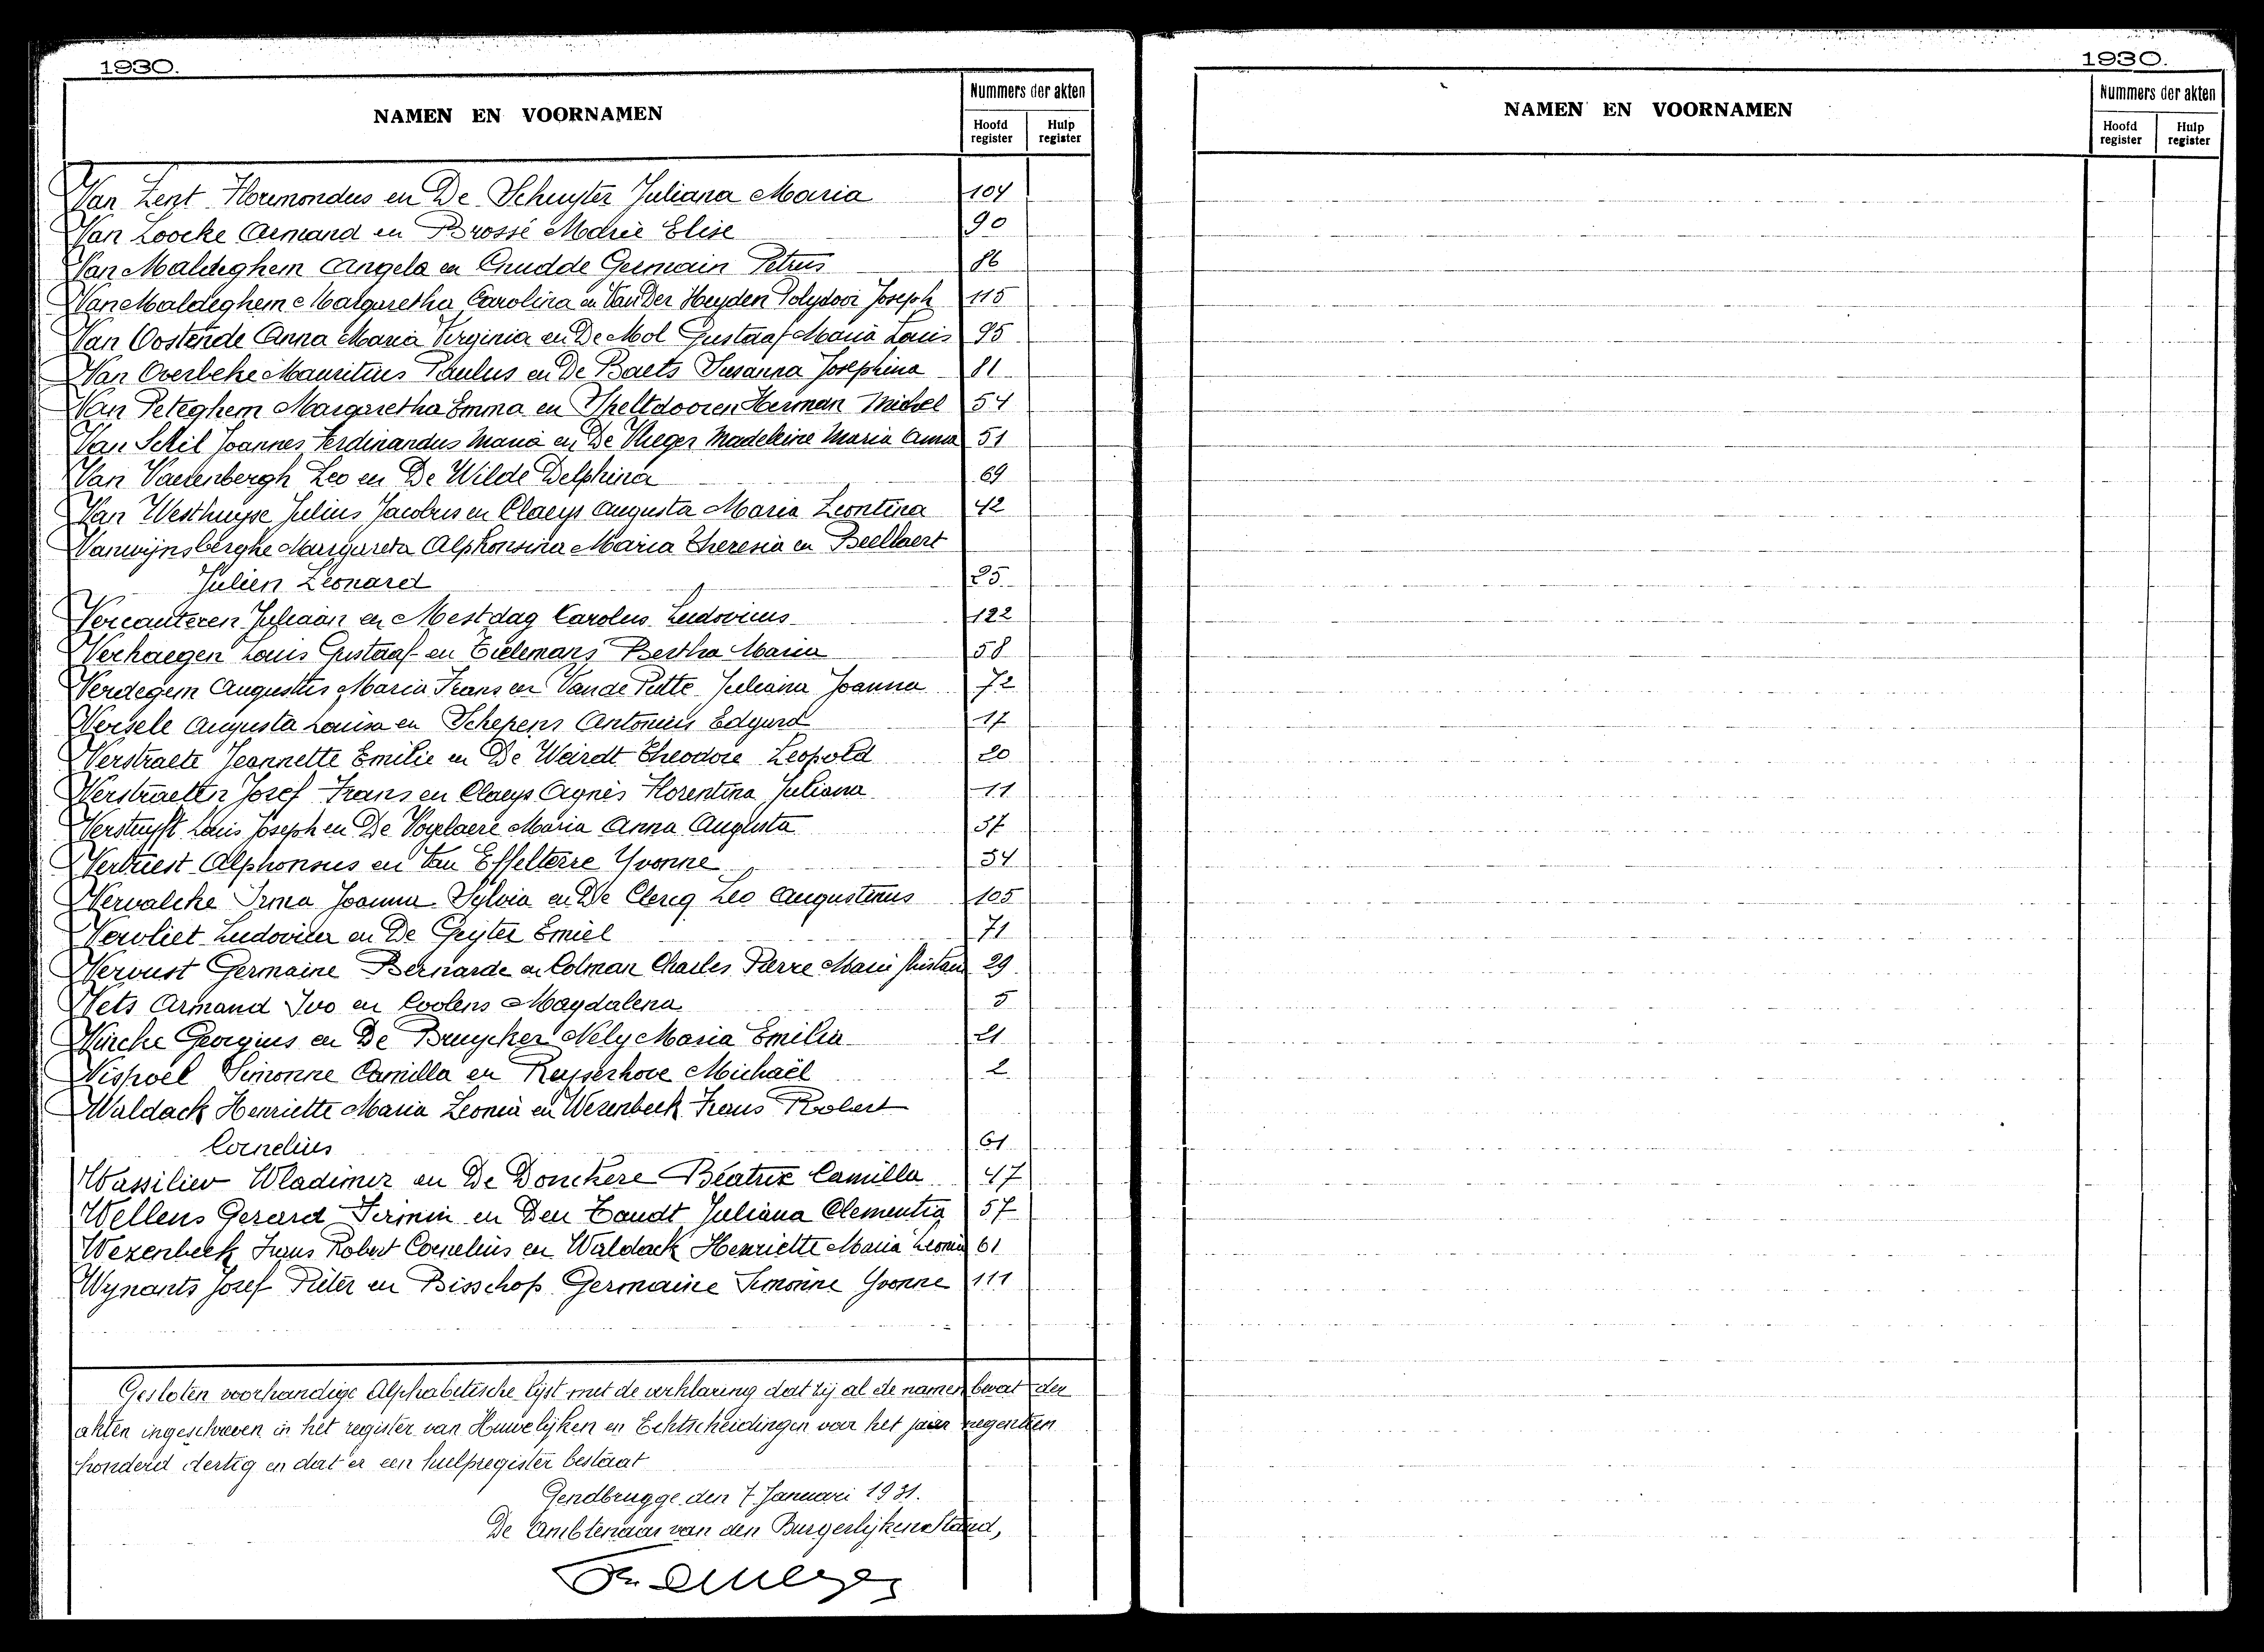 1930.
NAMEN EN VOORNAMEN
Nummers der akten
Hoofd register
Hulp register
Van en De Schuyter Juliana Maria 104
Van Loocke Armand en Brossé Marie Elise 90
Van Maldeghem Angela en Germain Petrus 86
Van Maldeghem Margaretha Carolina en Van Der Heyden Polydoor Joseph 115
Van Oostende Anna Maria Virginia en De Mol Gustaaf Maria Louis 95
Van Overbeke Mauritius Paulus en De Baets Susanna Josephina 81
Van Peteghem Margaretha Emma en Herman Michel 54
Van Schil Joannes Ferdinandus Maria en De Vlieger Madeleine Maria Anna 51
Van Vaerenbergh Leo en De Wilde Delphina 69
Van Westhuyse Julius Jacobus en Claeys Augusta Maria Leontina 42
Vanwijnsberghe Margareta Alphonsina Maria Theresia en Beellaert
Julien Leonard 25
Vercauteren Juliaan en Mestdag Carolus Ludovicus 122
Verhaegen Louis Gustaaf en Tielemans Bertha Maria 58
Verdegem Augustus Maria Frans en Van de Putte Juliana Joanna 72
Versele Augusta Louisa en Schepens Antonius Edgard 17
Verstraete Jeannette Emilie en De Weirdt Theodore Leopold 20
Verstraeten Josef Frans en Claeys Agnes Florentina Juliana 11
Verstuyft Louis Joseph en De Vogelaere Maria Anna Augusta 37
Vertriest Alphonsus en Van Effelterre Yvonne 34
Vervalcke Irma Joanna Sylvia en De Clercq Leo Augustinus 105
Vervliet Ludovica en De Geyter Emiel 71
Vervust Germaine Bernarde en Colman Charles Pierre Marie 29
Vets Armand Ivo en Coolens Magdalena 5
Georgius en De Bruycker Nely Maria Emilia 21
Vispoel Simonne Camilla en Reyserhove Michaël 2
Waldack Henriette Maria Leonia en Wezenbeek Frans Robert
Cornelius 61
Wassiliev Wladimir en De Donckere Béatrix Camilla 47
Wellens Gerard Firmin en Den Tandt Juliana Clementia 57
Wezenbeek Frans Robert Cornelius en Waldack Henriette Maria Leonia 61
Wynants Josef Pieter en Bisschop Germaine Simonne Yvonne 111
Gesloten voorhandige Alphabetische lijst met de verklaring dat zij al de namen bevat der
akten ingeschreven in het register van Huwelijken en Echtscheidingen voor het jaar negentien
honderd dertig en dat er een hulpregister bestaat
Gendbrugge den 7 Januari 1931.
De Ambtenaar van den Burgerlijken Stand,
1930.
NAMEN EN VOORNAMEN
Nummers der akten
Hoofd register
Hulp register